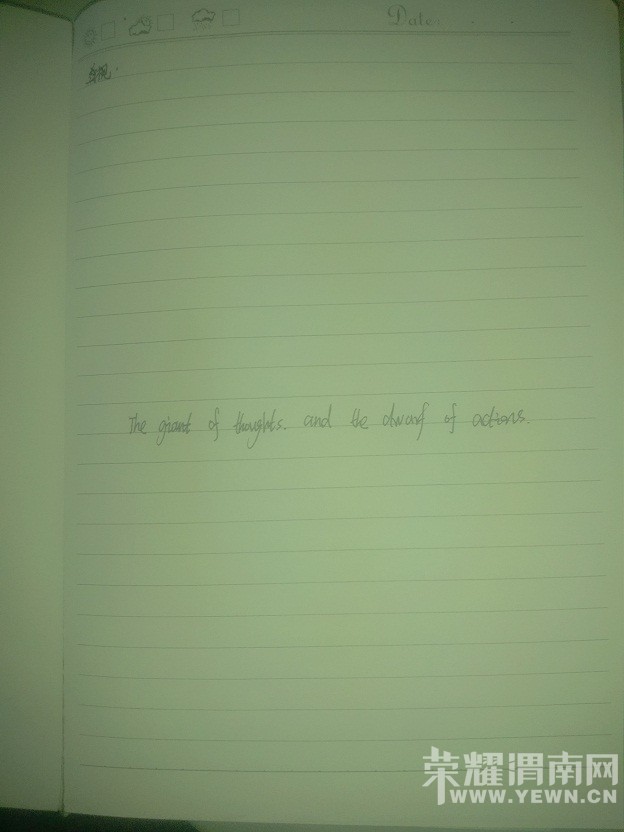 Date:
The giant of thoughts. and the dwarf of actions.
荣耀渭南网
WWW.YEWN.CN